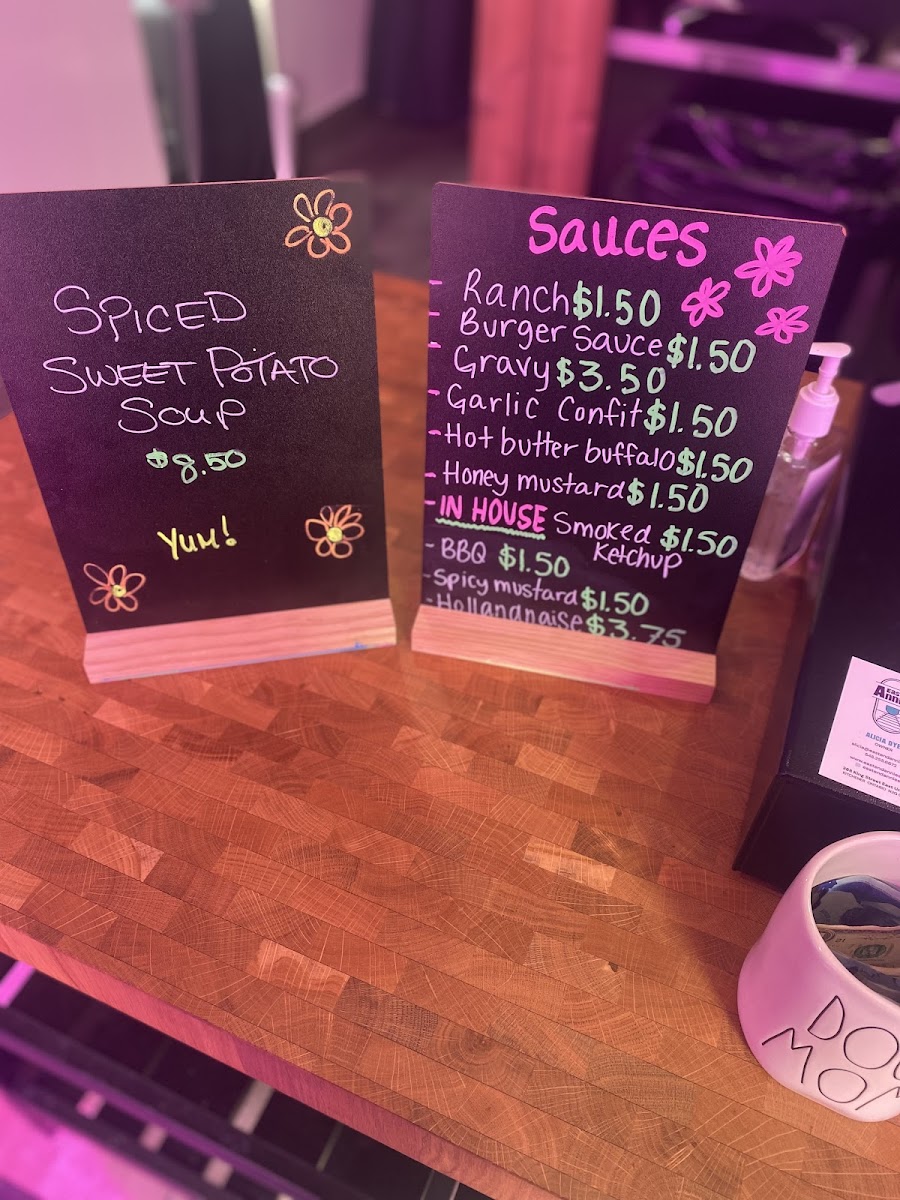 SPICED
SWEET POTATO
SOUP
$8.50
YUM!
Sauces
- Ranch $1.50
- Burger Sauce $1.50
- Gravy $3.50
- Garlic Confit $1.50
- Hot butter buffalo $1.50
- Honey mustard $1.50
- IN HOUSE Smoked $1.50
Ketchup
- BBQ $1.50
- Spicy mustard $1.50
- Hollandnaise $3.75
ALICIA
OWNER